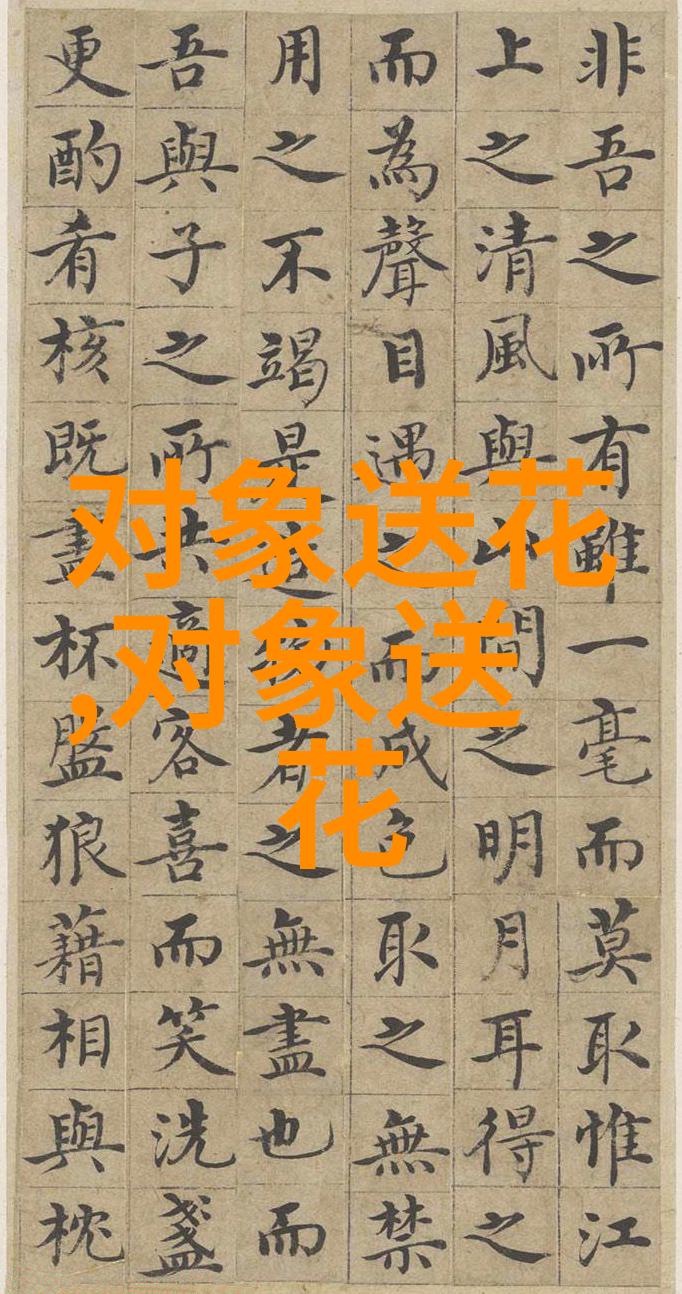 非吾之所有雖一毫而莫取惟江
上之清風與山間之明月耳得之
而為聲目遇之而成色取之無禁
用之不竭是造物者之無盡也而
吾與子之所共適客喜而笑洗盞
更酌肴核既盡杯盤狼藉相與枕
对象送花
,对象送
花